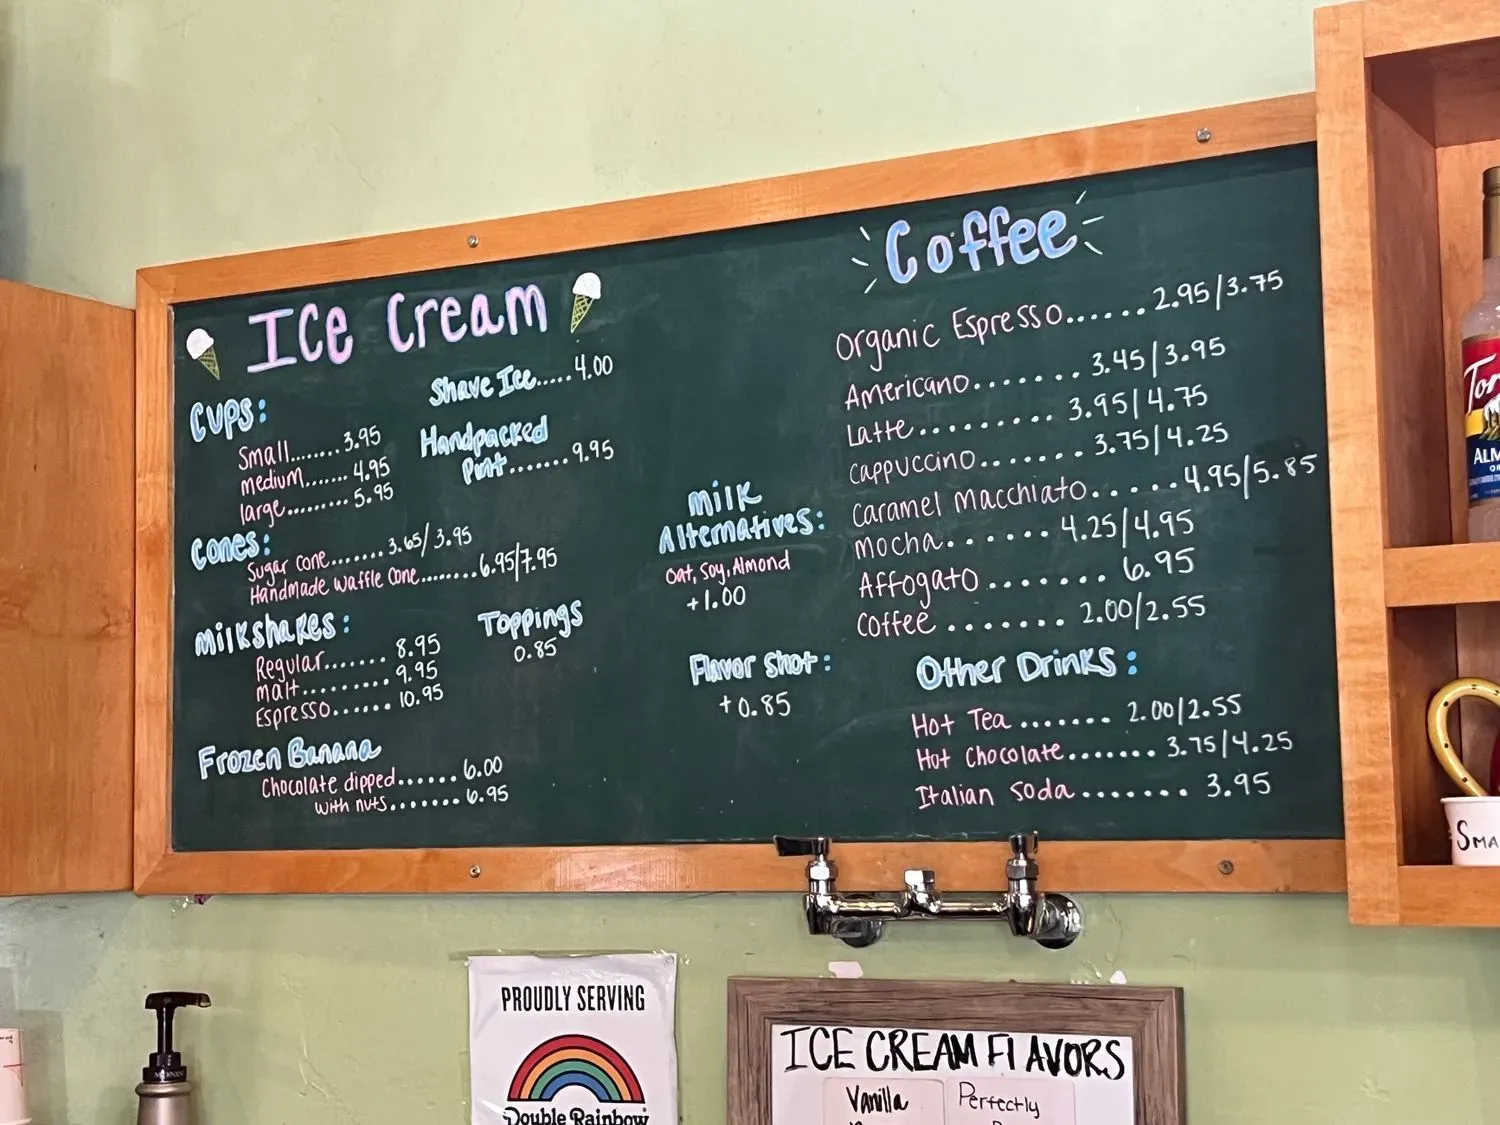 Ice Cream
Shave Ice.....4.00
Cups:
Small........3.95
medium.......4.95
large..........5.95
Handpacked
Pint.......9.95
Cones:
Sugar cone.......3.65/3.95
Handmade waffle cone........6.95/7.95
Milkshakes:
Regular.......8.95
malt..........9.95
Espresso......10.95
Toppings
0.85
Frozen Banana
Chocolate dipped......6.00
with nuts.......6.95
Milk
Alternatives:
Oat, Soy, Almond
+1.00
Flavor Shot:
+0.85
Coffee
Organic Espresso......2.95/3.75
Americano.......3.45/3.95
Latte.........3.95/4.75
Cappuccino.......3.75/4.25
Caramel Macchiato.....4.95/5.85
Mocha......4.25/4.95
Affogato.......6.95
Coffee.......2.00/2.55
Other Drinks:
Hot Tea.......2.00/2.55
Hot Chocolate.......3.75/4.25
Italian Soda.......3.95
Tor
ALM
SMA
PROUDLY SERVING
Double Rainbow
ICE CREAM FLAVORS
Vanilla
Perfectly
MONIN